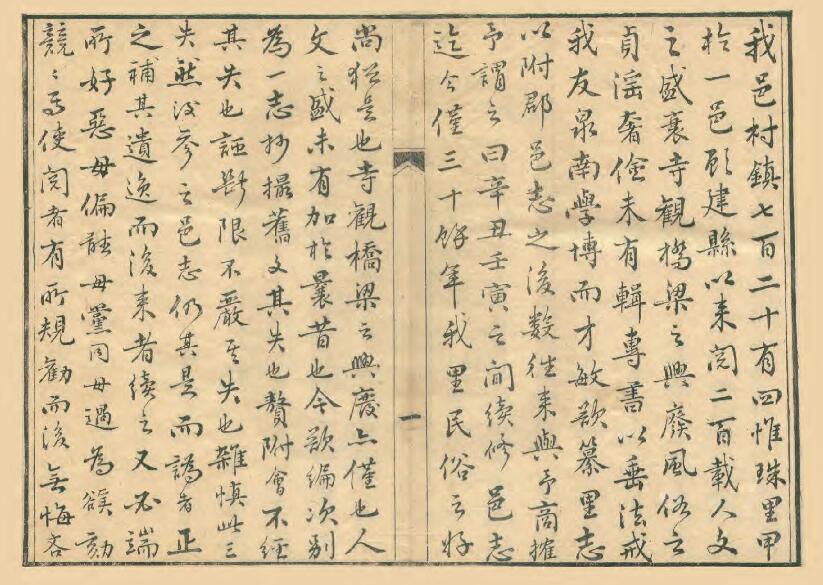 我邑村鎮七百二十有四惟珠里甲
於一邑顧建縣以来閱二百載人文
之盛衰寺觀橋梁之興廢風俗之
貞淫奢儉未有輯專書以垂法戒
我友泉南學博而才敏欲纂里志
以附郡邑志之後數往来與予商搉
予謂之曰辛丑壬寅之間續修邑志
迄今僅三十餘年我里民俗之好
一
尚猶是也寺觀橋梁之興廢亦僅也人
文之盛未有加於曩昔也今欲編次別
為一志抄撮舊文其失也贅附會不經
其失也誣斷限不嚴其失也雜慎此三
失然後參之邑志仍其是而譌者正
之補其遺逸而後来者續之又必端
所好惡毋偏詖毋黨同毋過為谿刻
競〻焉使閱者有所規勸而後無悔吝